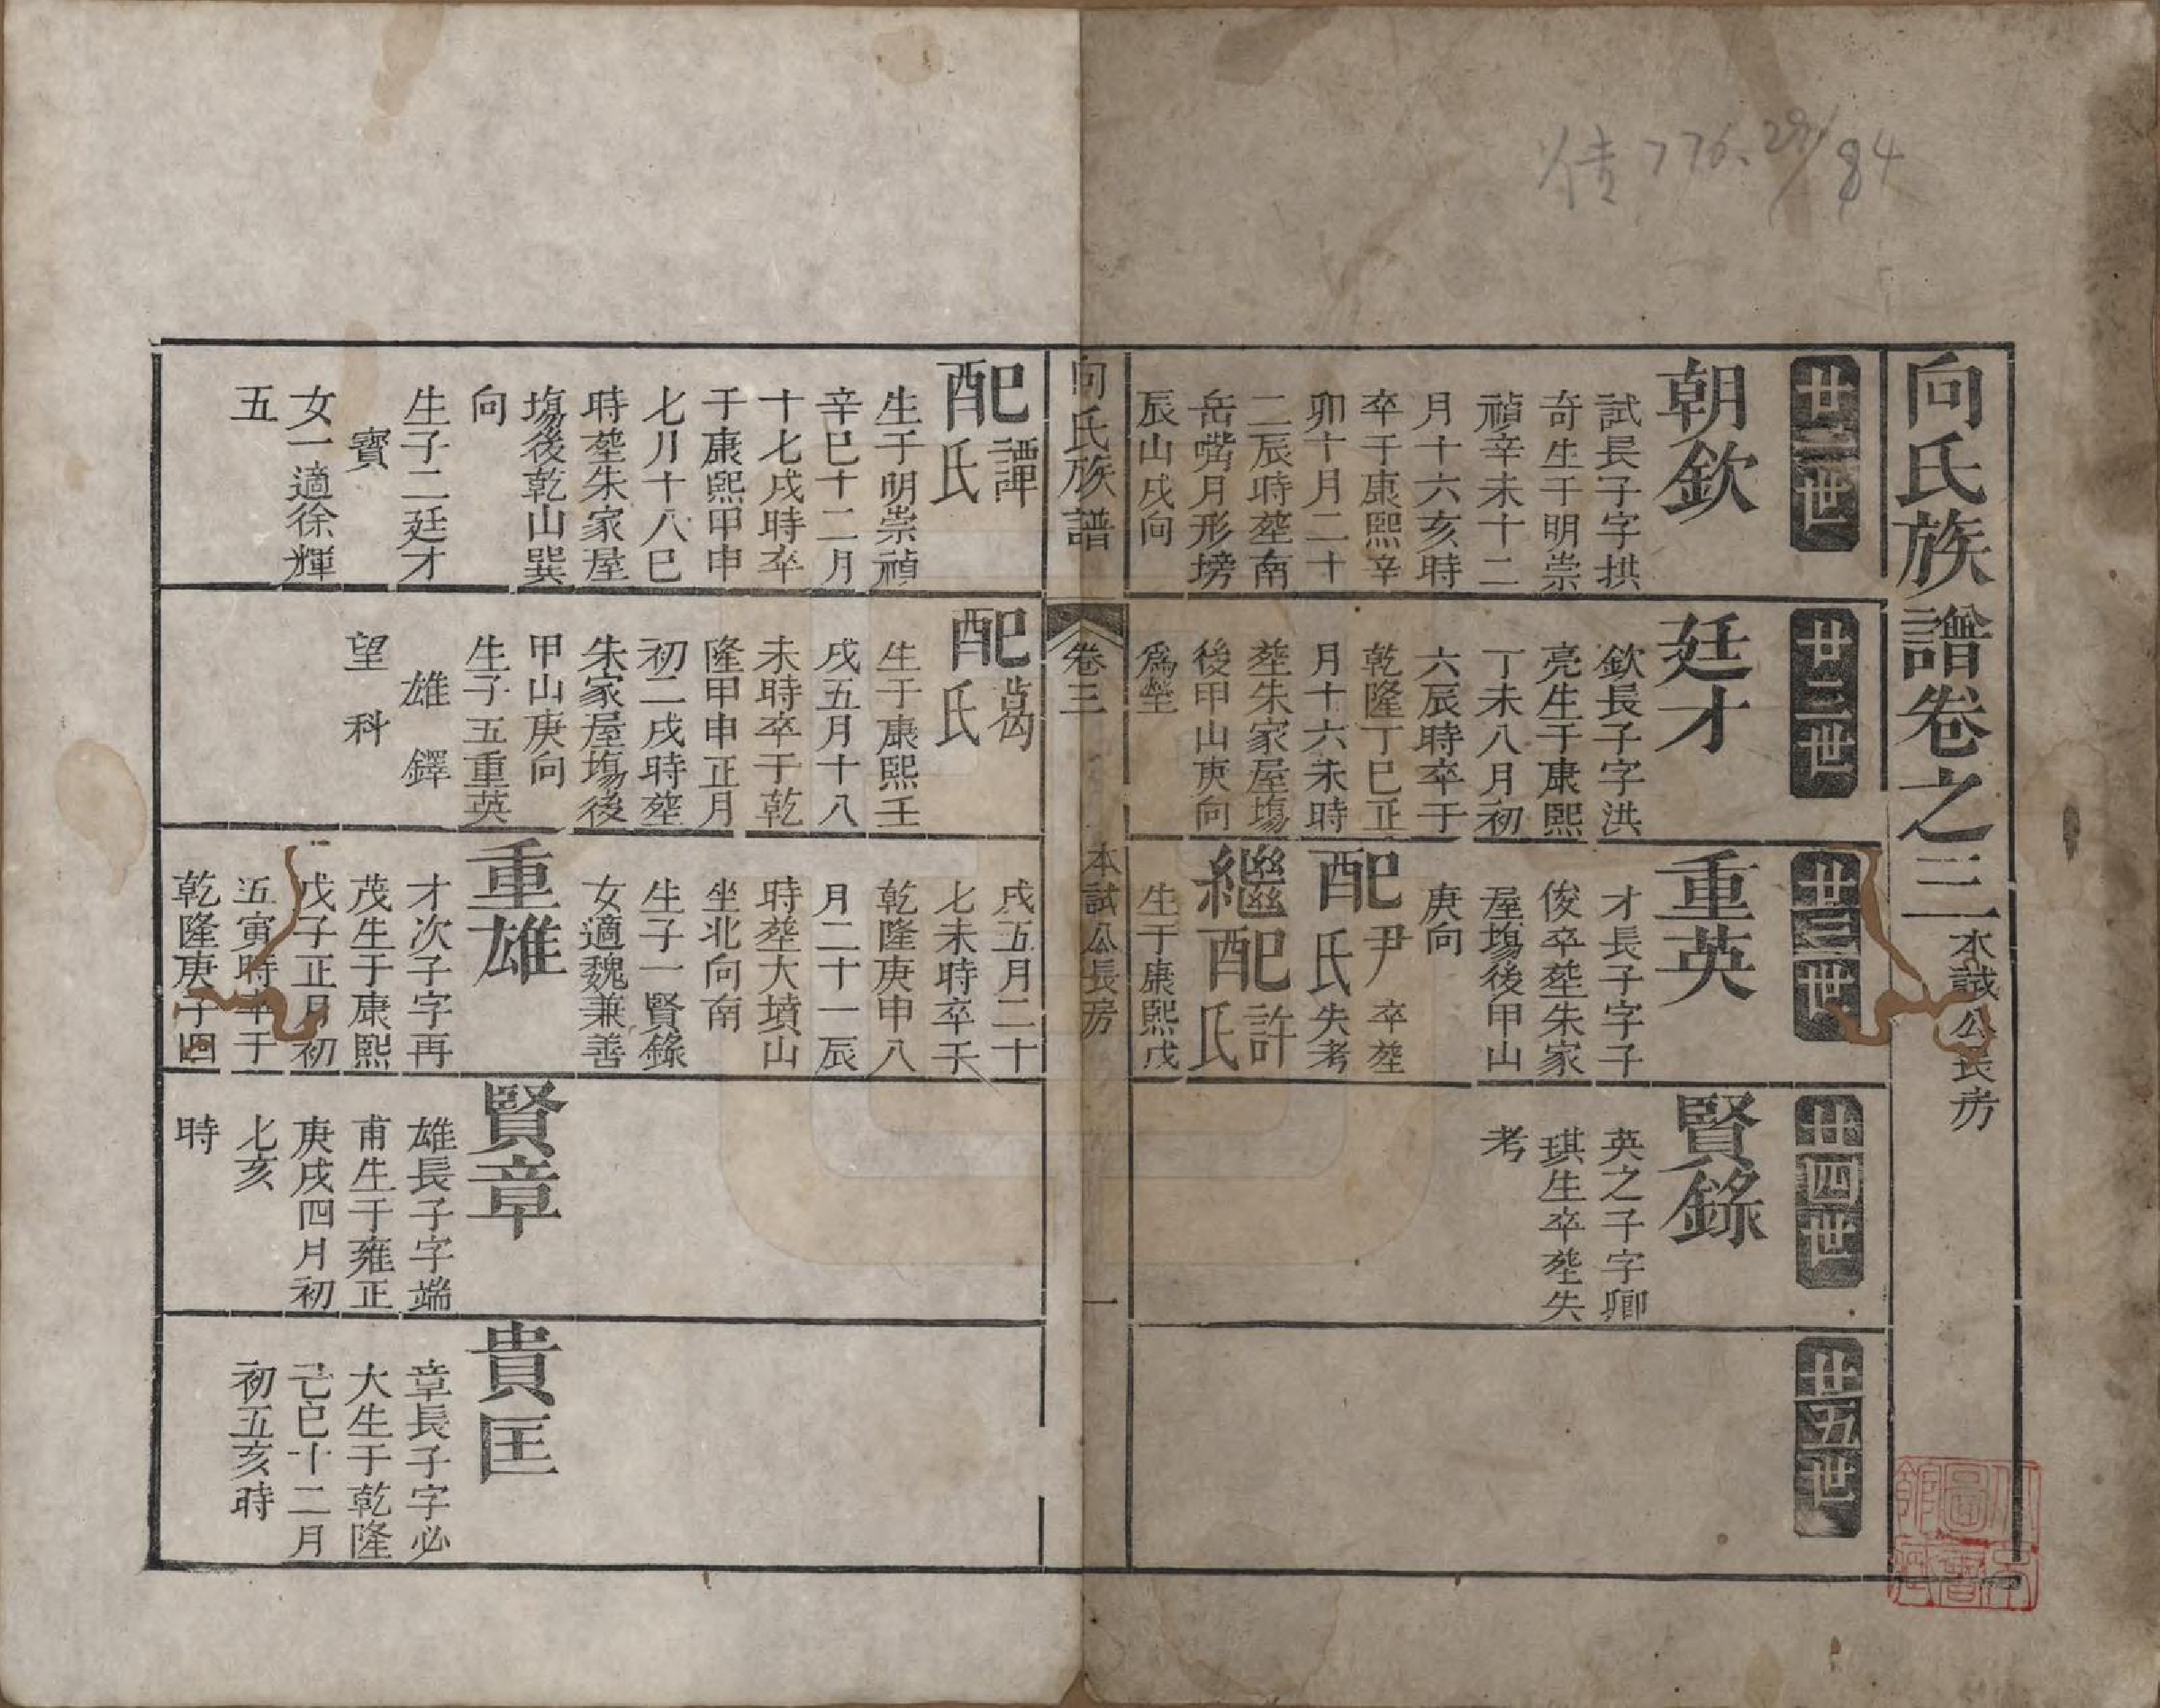 向氏族譜卷之三 本試公長房
廿一世
朝欽
試長子字拱
奇生于明崇
禎辛未十二
月十六亥時
卒于康熙辛
卯十月二十
二辰時塟南
岳嘴月形塝
辰山戌向
廿二世
廷才
欽長子字洪
亮生于康熙
丁未八月初
六辰時卒于
乾隆丁巳正
月十六未時
塟朱家屋塲
後甲山庚向
為塋
廿三世
重英
才長子字子
俊卒塟朱家
屋塲後甲山
庚向
配尹氏 卒塟
失考
繼配許氏
生于康熙戊
廿四世
賢錄
英之子字卿
琪生卒塟失
考
廿五世
向氏族譜 卷三 本試公長房 一
配譚氏
生于明崇禎
辛巳十二月
十七戌時卒
于康熙甲申
七月十八巳
時塟朱家屋
塲後乾山巽
向
生子二廷才
寶
女一適徐輝
五
配葛氏
生于康熙壬
戌五月十八
未時卒于乾
隆甲申正月
初二戌時塟
朱家屋塲後
甲山庚向
生子五重英
雄 鐸
望 科
戌五月二十
七未時卒于
乾隆庚申八
月二十一辰
時塟大墳山
坐北向南
生子一賢錄
女適魏兼善
重雄
才次子字再
茂生于康熙
戊子正月初
五寅時卒于
乾隆庚子四
賢章
雄長子字端
甫生于雍正
庚戌四月初
七亥
時
貴匡
章長子字必
大生于乾隆
己巳十二月
初五亥時
776.29/84